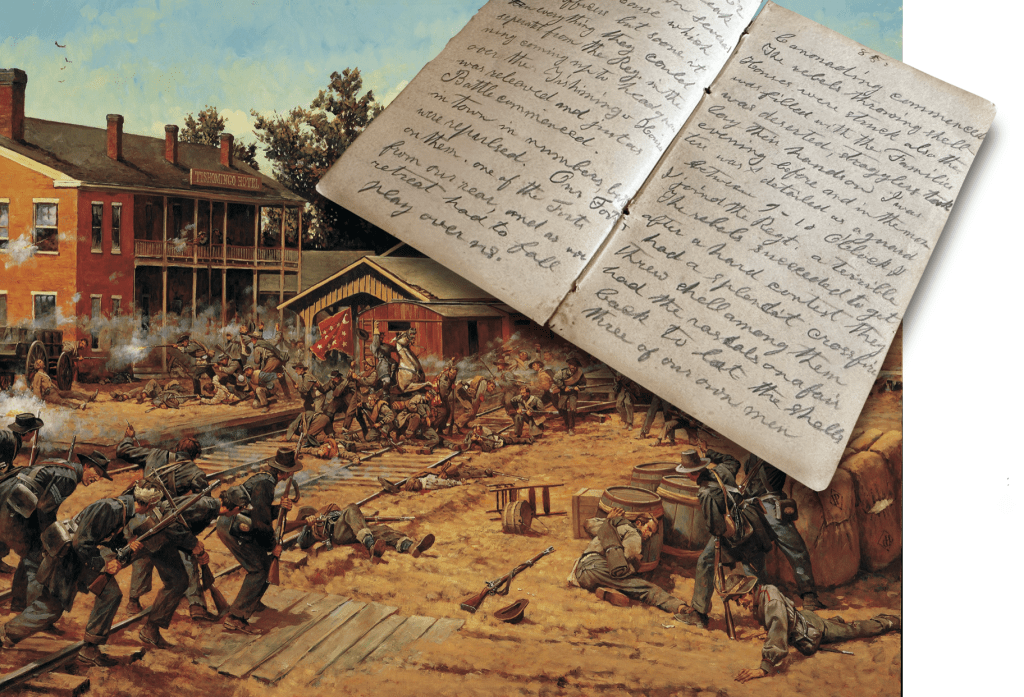 TISHOMINGO HOTEL
course which
officers but soone it
for everything they could
from the in the
ning coming up to
over the Tishomingo
was releaved and just as
Battle commenced
in town in numbers, but
were repulsed. Our For
on them. one of the First
from our rear, and as we
retreat had to fall
play over us.
Canonading commenced
The rebels throwing shells
were struck also the
was filled with the Families
was deserted, stragglers took
I was
evening before and in the mor
ters was detailed as a guard
Between 9-10 Oclock I
found the Regt. a terrible
The rebels succeeded to get
after a hard contest they
had a splendit crossfire
threw shell among them
had the rascals on a fair
back to let the shells
three of our own men